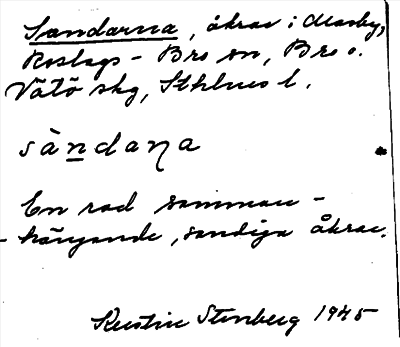 Sandarna, åkrar i Masby,
Roslags-Bro sn, Bro o.
Vätö skg, Sthlms l.
sàndaṇa
En rad samman-
hängande, sandiga åkrar.
Kerstin Stenberg 1945